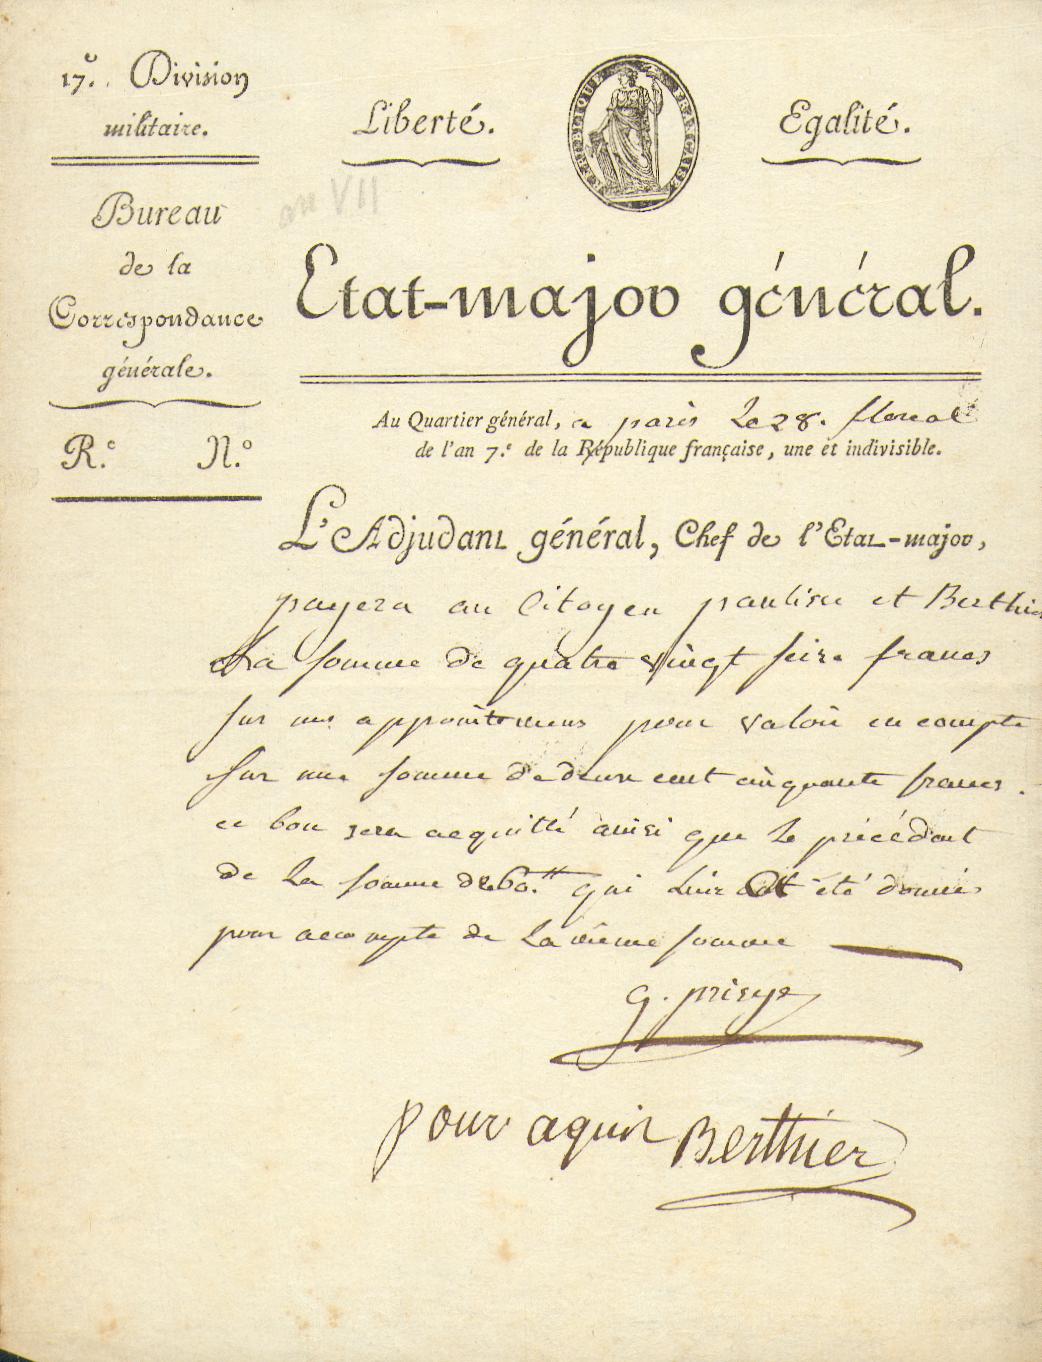 17.e Division
militaire.
Bureau
de la
Correspondance
générale.
R.e N.o
Liberté.
REPUBLIQUE FRANÇAISE
Egalité.
an VII
Etat-major général.
Au Quartier général, a paris Le 28. floreal
de l'an 7.e de la République française, une et indivisible.
L'Adjudant général, Chef de l'Etat-major,
payera au Citoyen et Berthier
La somme de quatre vingt seize francs
sur mes appointemens pour valoir en compte
sur une somme de deux cent cinquante francs.
ce bon sera acquitté ainsi que le précédent
de La somme de 60.tt qui leur été donné
pour acompte de La même somme
g. prieye
pour aquit Berthier